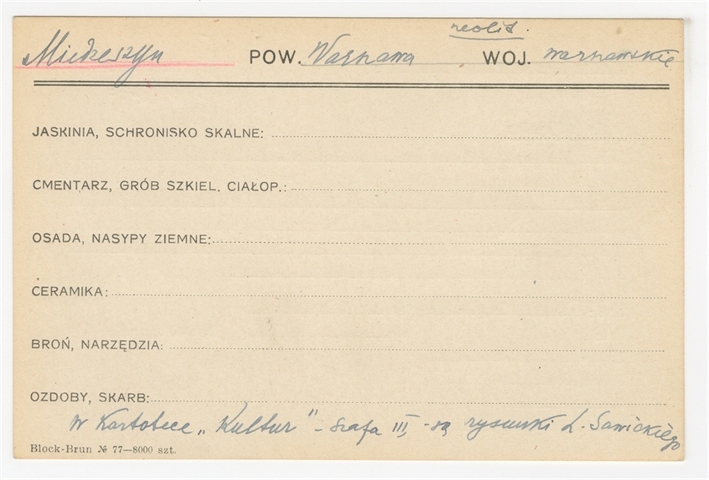 neolit.
Miedzeszyn POW. Warszawa WOJ. warszawskie
JASKINIA, SCHRONISKO SKALNE:
CMENTARZ, GRÓB SZKIEL. CIAŁOP.:
OSADA, NASYPY ZIEMNE:
CERAMIKA:
BROŃ, NARZĘDZIA:
OZDOBY, SKARB:
W Kartotece „Kultur" – szafa III, – są rysunki L. Sawickiego
Block-Brun № 77—8000 szt.